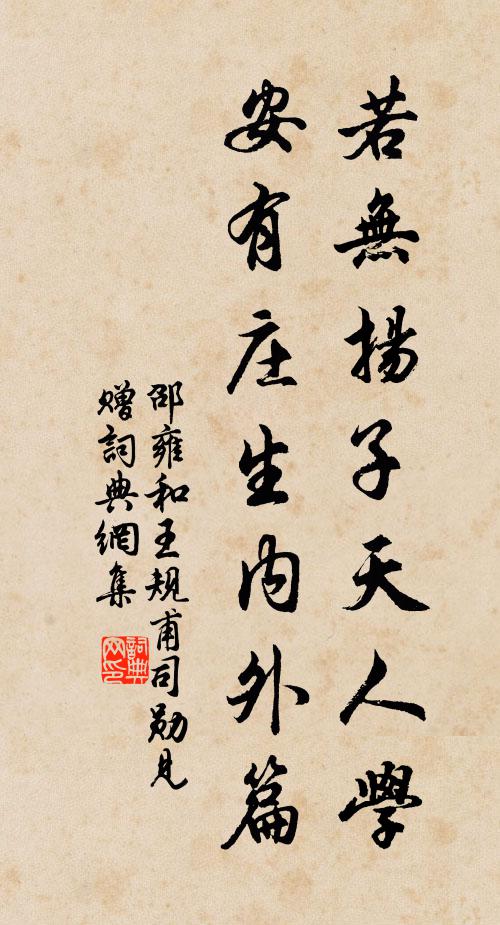 若無揚子天人學
安有庄生內外篇
邵雍和王規甫司勛見
贈詞典網集
詞典網印